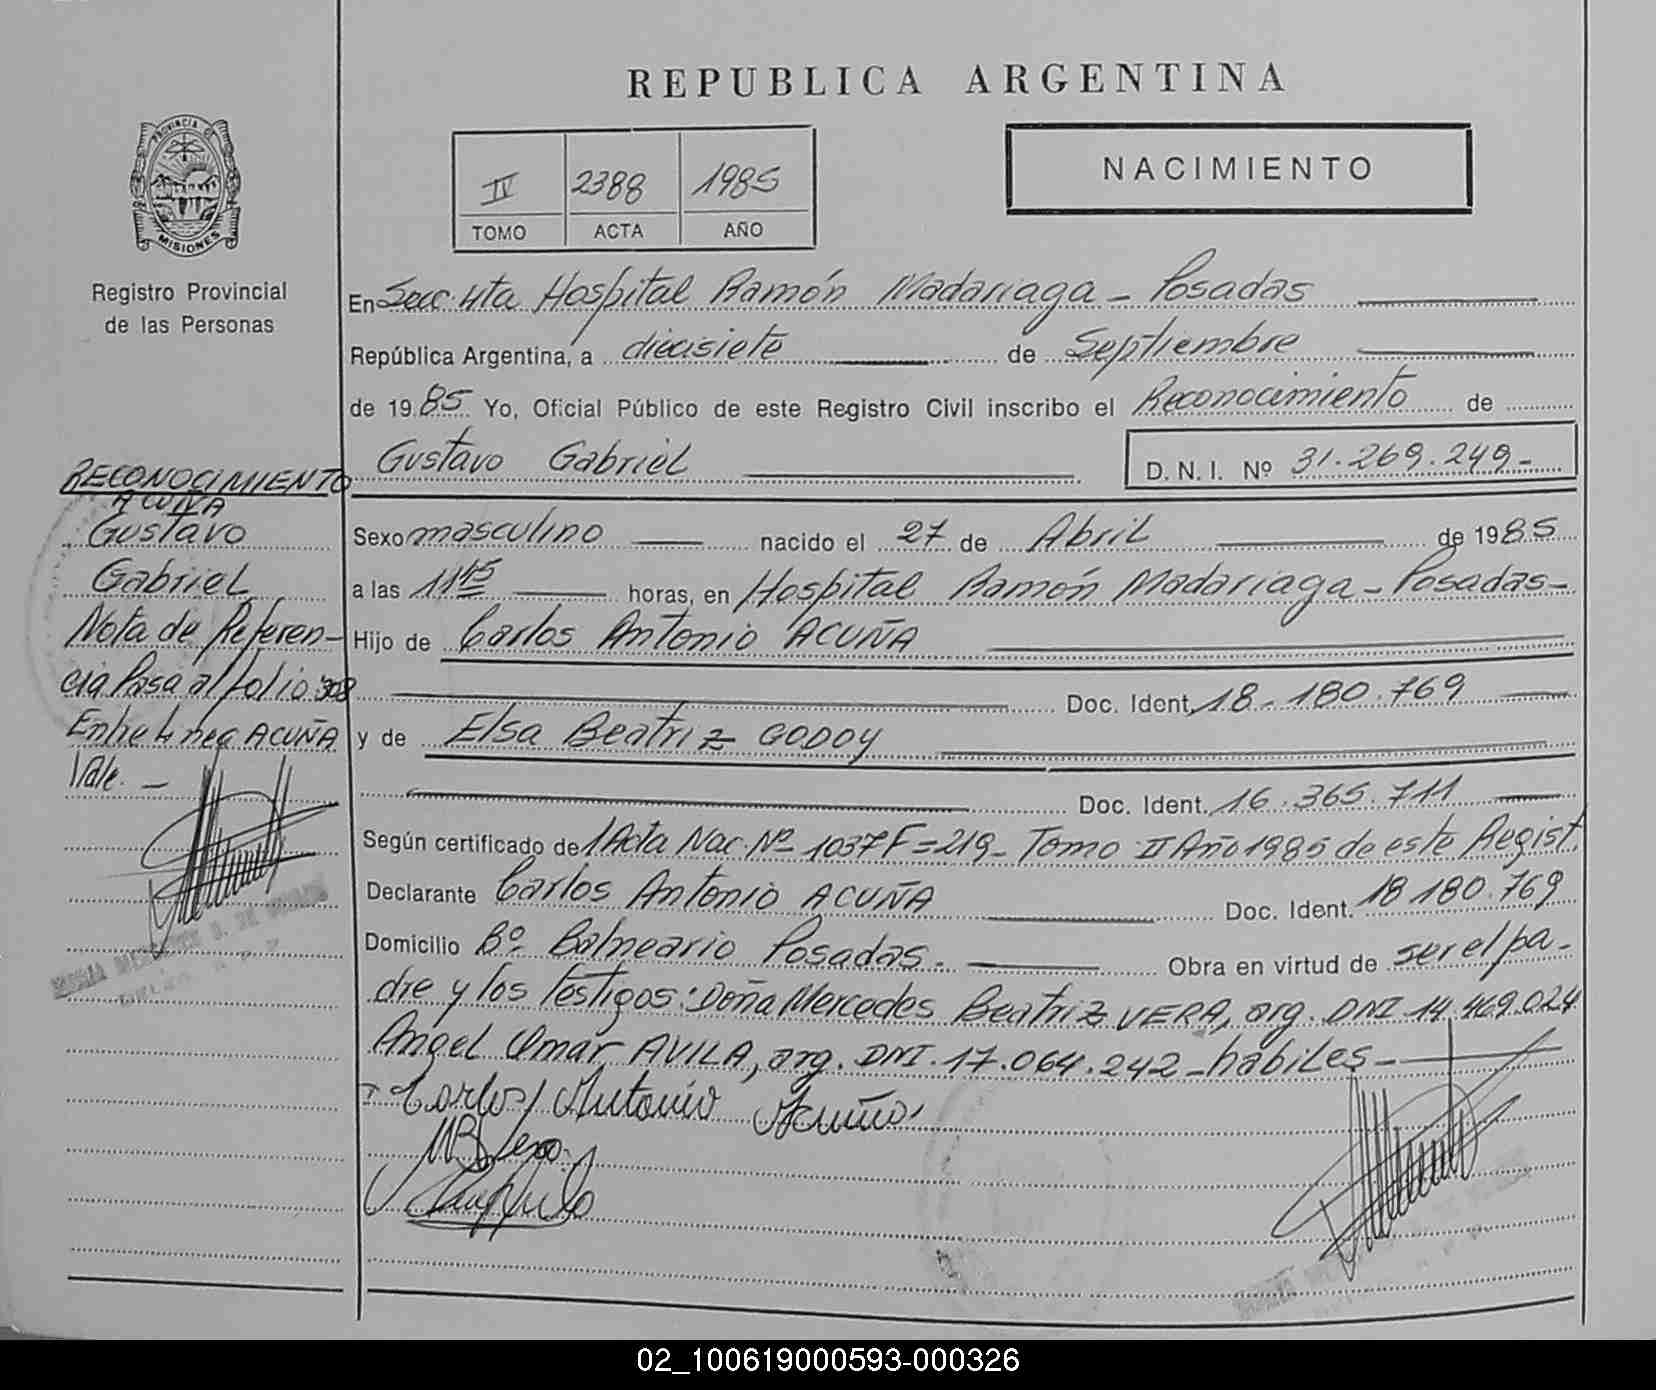 REPUBLICA ARGENTINA
PROVINCIA D
MISIONES
Registro Provincial
de las Personas
IV 2388 1985
TOMO ACTA AÑO
NACIMIENTO
En Secc. 4ta Hospital Ramón Madariaga - Posadas
República Argentina, a diecisiete de Septiembre
de 1985 Yo, Oficial Público de este Registro Civil inscribo el Reconocimiento de
Gustavo Gabriel
D. N. I. Nº 31.269.249-
Sexo masculino nacido el 27 de Abril de 1985
a las 11 45 horas, en Hospital Ramón Madariaga - Posadas -
Hijo de Carlos Antonio ACUÑA
Doc. Ident. 18-180.769
y de Elsa Beatriz GODOY
Doc. Ident. 16.365.711
Según certificado de 1 Acta Nac. Nº 1037 F=219- Tomo II Año 1985 de este Regist.
Declarante Carlos Antonio ACUÑA Doc. Ident. 18 180.769
Domicilio Bº Balneario Posadas. Obra en virtud de ser el pa-
dre y los testigos: Doña Mercedes Beatriz VERA, arg. DNI 14.469.024
Angel Omar AVILA, arg. DNI. 17.064.242 - habiles -
Carlos Antonio Acuña
RECONOCIMIENTO
ACUÑA
Gustavo
Gabriel
Nota de Referen-
cia Pasa al folio 308
Entre linea ACUÑA
Vale. -
02_100619000593-000326